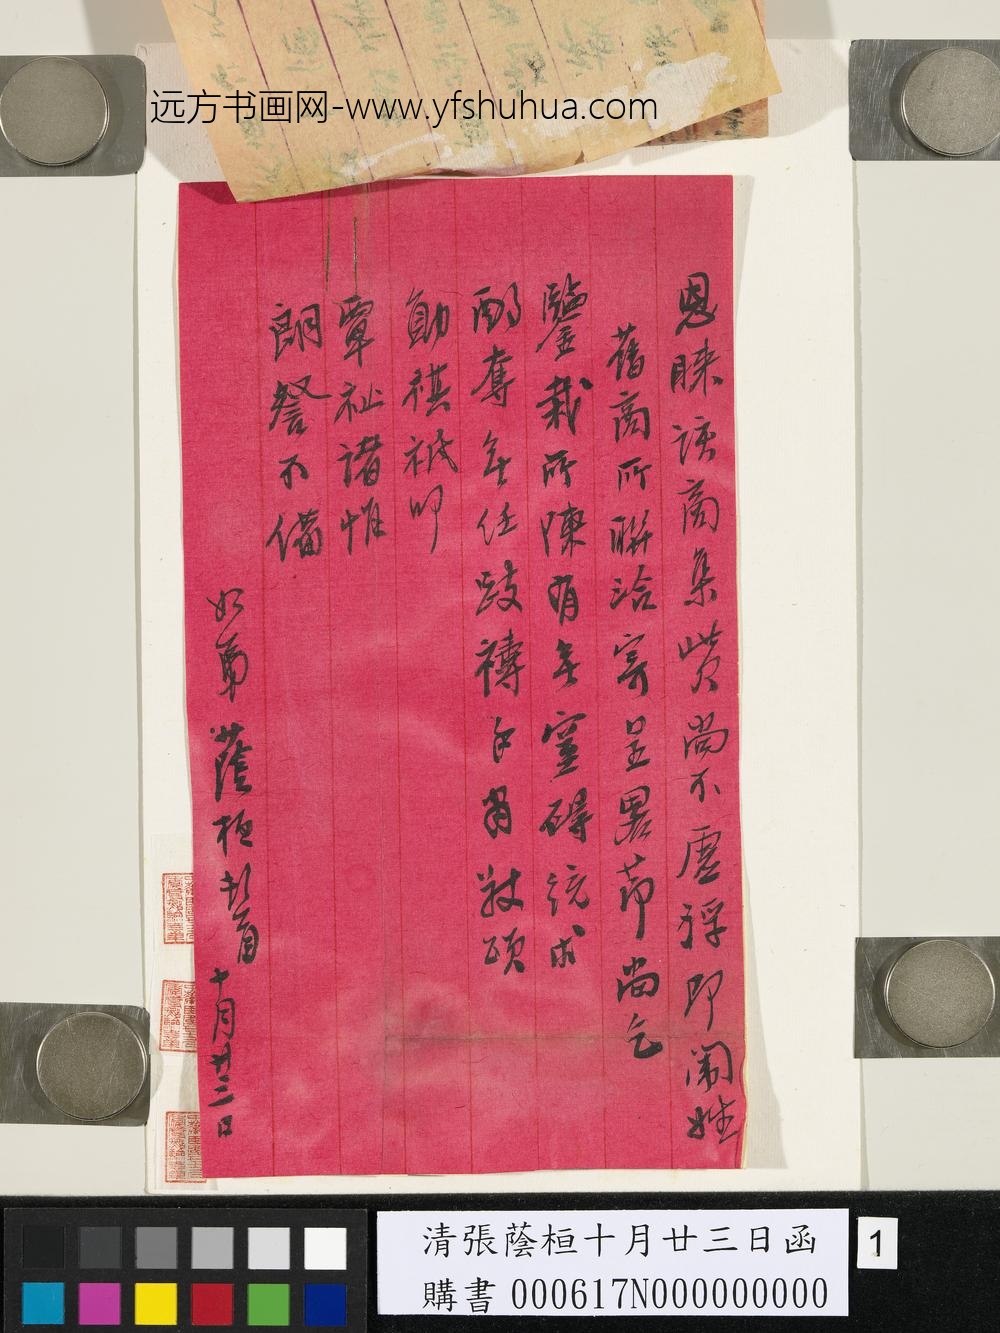 远方书画网-www.yfshuhua.com
恩睞該商集貲尚不虛浮即闈姓
舊商所聯洽寄呈畧節尚乞
鑒裁所陳有無窒碍統求
酌奪無任跂禱手肅敬頌
勛祺祗叩
覃祉諸惟
朗詧不備
如弟蔭桓頓首十月廿三日
清張蔭桓十月廿三日函
1
購書 000617N000000000